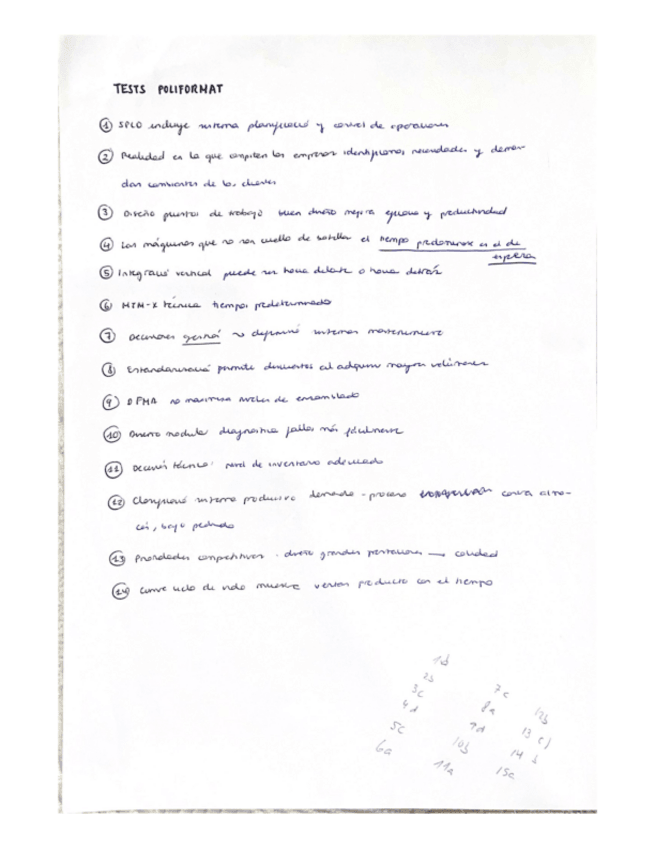 TESTS POLIFORMAT
① SPCO incluye sistema planificació y control de operaciones
② Realidad en la que compiten las empresas identifiquemos necesidades y deman
dan constantes de los clientes
③ Diseño puestos de trabajo buen diseño mejora ejecuc y productividad
④ Las máquinas que no son cuello de botella el tiempo predominante es el de
espera
⑤ Integració vertical puede ser hacia delante o hacia detrás
⑥ MTM-X técnica tiempos predeterminado
⑦ Decisiones gestió ~ sistemas mantenimiento
⑧ Estandarizació permite descuentos al adquirir mayores volúmenes
⑨ DFMA no maximiza niveles de ensamblado
⑩ Diseño modular diagnostica fallos más fácilmente
⑪ Decisió técnica: nivel de inventario adecuado
⑫ Clasificació sistema productivo demanda - proceso contra alma-
cén, bajo pedido
⑬ Prioridades competitivas - diseño grandes prestaciones → calidad
⑭ Curva ciclo de vida muestra ventas producto con el tiempo
1b
2b
3c
4d
5c
6a
7c
8a
9d
10b
11a
12b
13 c)
14 b
15a